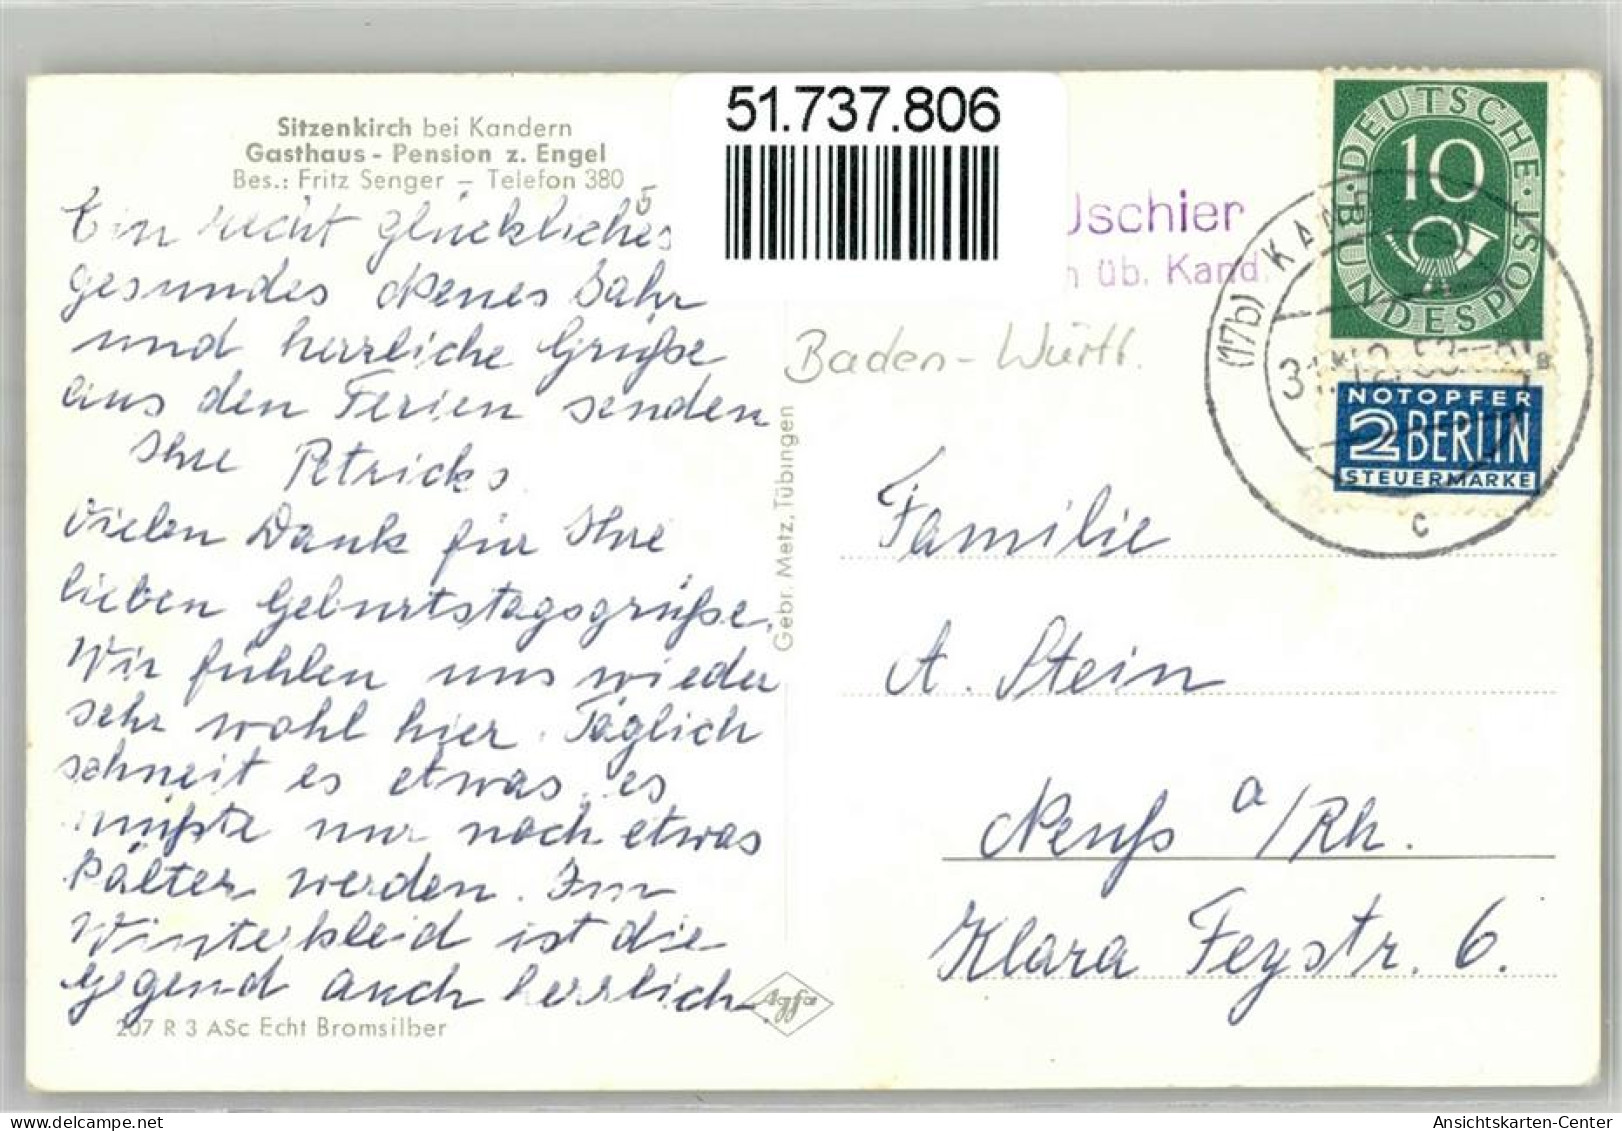 51.737.806
Sitzenkirch bei Kandern
Gasthaus - Pension z. Engel
Bes.: Fritz Senger – Telefon 380
5
Ein recht glückliches
gesundes Neues Jahr
und herrliche Grüße
aus den Ferien senden
Ihre Petricks.
Vielen Dank für Ihre
lieben Geburtstagsgrüße.
Wir fühlen uns wieder
sehr wohl hier. Täglich
schneit es etwas, es
müßte nur noch etwas
kälter werden. Im
Winterkleid ist die
Gegend auch herrlich.
207 R 3 ASc Echt Bromsilber
Agfa
Gebr. Metz, Tübingen
Jschier
n üb. Kand.
Baden-Württ.
DEUTSCHE BUNDESPOST
10
(17b) KAN
31.12.53
c
NOTOPFER
2 BERLIN
STEUERMARKE
Familie
A. Stein
Neuß a/Rh.
Klara Feystr. 6.
AnsichtskartenCenter